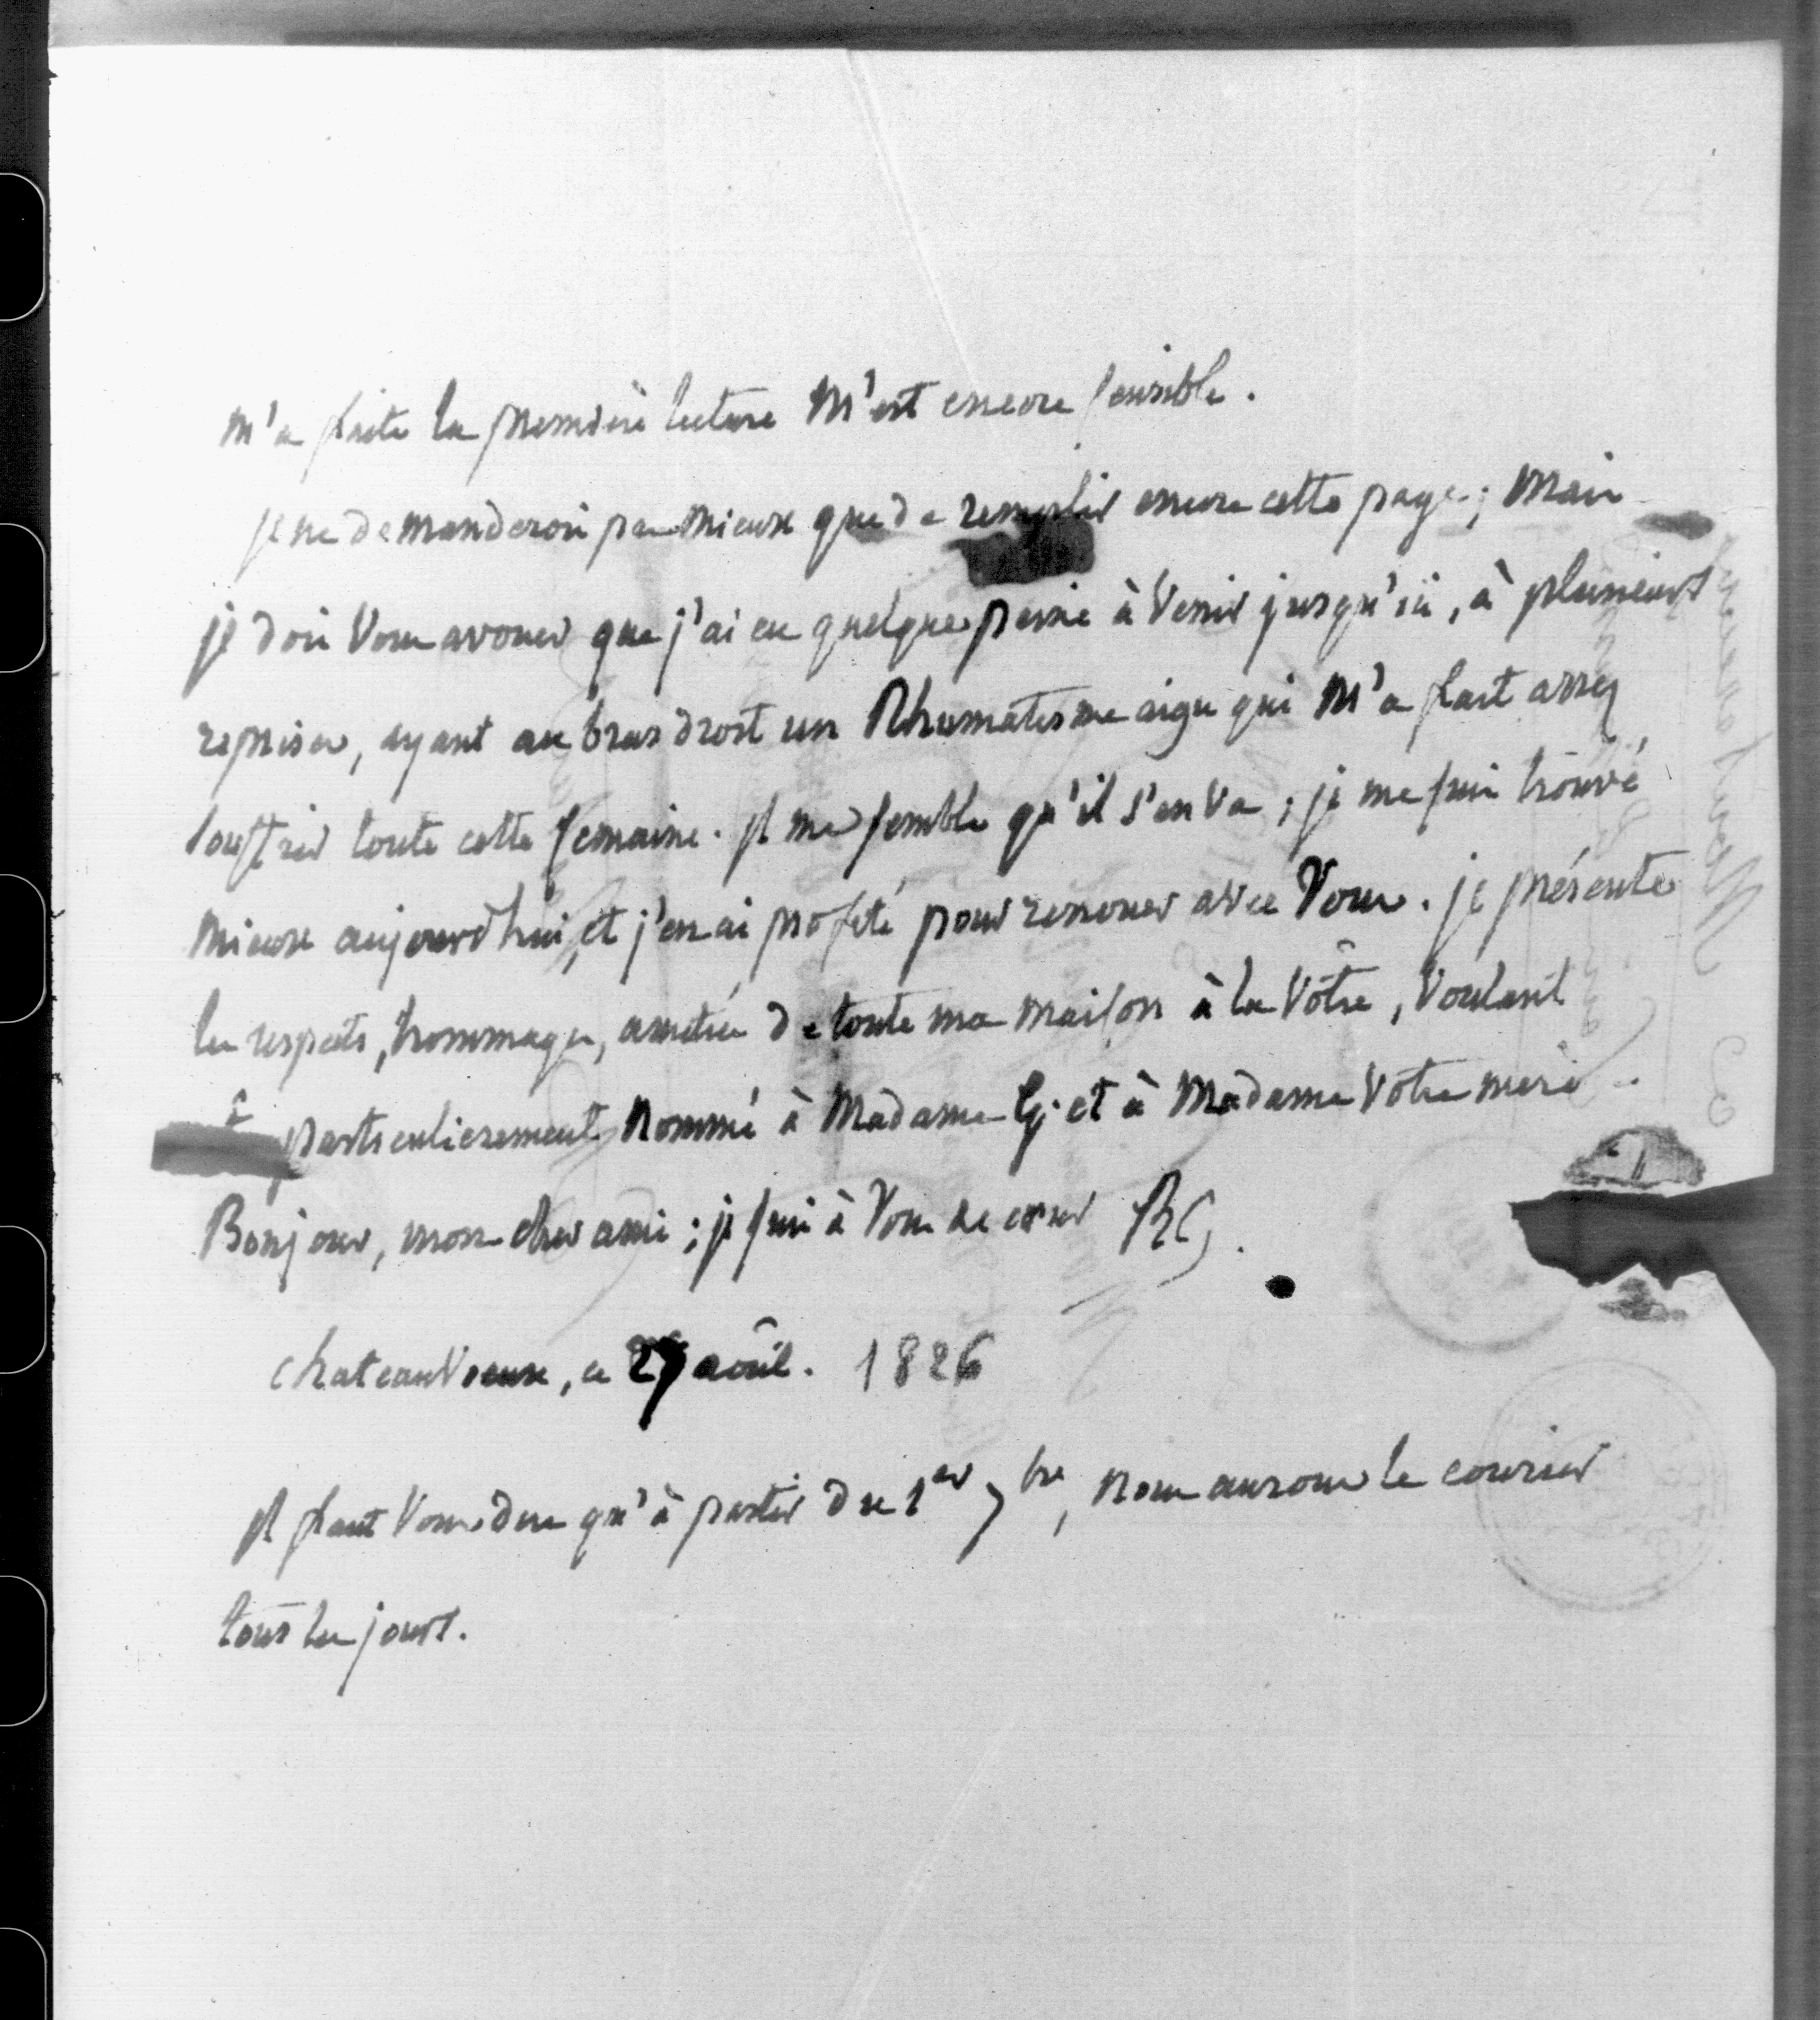 m'a faite la première lecture m'est encore sensible.
je ne demanderois pas mieux que de remplir encore cette page; mais
je dois vous avouer que j'ai eu quelque peine à venir jusqu'ici, à plusieurs
reprises, ayant au bras droit un Rhumatisme aigu qui m'a fait assez
souffrir toute cette semaine. il me semble qu'il s'en va; je me suis trouvé
mieux aujourd'hui, et j'en ai profité pour renouer avec vous. je présente
les respects, hommages, amitiés de toute ma maison à la vôtre, voulant
particulierement nommé à Madame G. et à Madame votre mere.
Bonjour, mon cher ami; je suis à vous de cœur RG.
chateauvieux, ce 27 aoûst. 1826
il faut vous dire qu'à partir du 1er 7bre, nous aurons le courier
tous les jours.